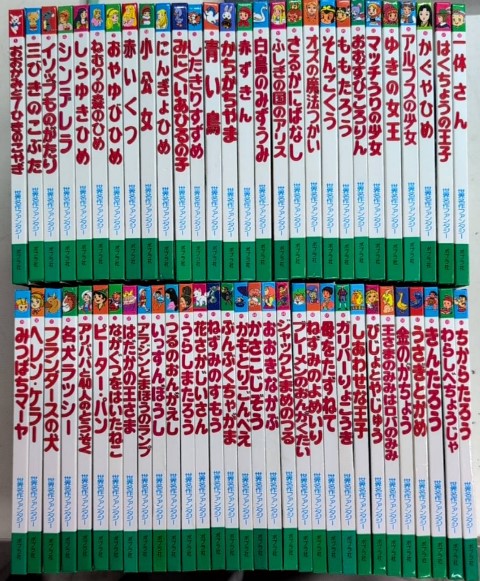 おおかみと7ひきのこやぎ
三びきのこぶた
イソップものがたり
シンデレラ
しらゆきひめ
ねむりの森のひめ
おやゆびひめ
赤いくつ
小公女
にんぎょひめ
みにくいあひるの子
したきりすずめ
青い鳥
かちかちやま
赤ずきん
白鳥のみずうみ
ふしぎの国のアリス
さるかにばなし
オズの魔法つかい
そんごくう
ももたろう
おむすびころりん
マッチうりの少女
ゆきの女王
アルプスの少女
かぐやひめ
はくちょうの王子
一休さん
世界名作ファンタジー
ポプラ社
みつばちマーヤ
ヘレン・ケラー
フランダースの犬
名犬ラッシー
アリババと40人のとうぞく
ピーター・パン
ながぐつをはいたねこ
はだかの王さま
アラジンとまほうのランプ
いっすんぼうし
つるのおんがえし
うらしまたろう
花さかじいさん
ねずみのすもう
ぶんぶくちゃがま
かもとりごんべえ
かさこじぞう
おおきなかぶ
ジャックとまめのつる
ブレーメンのおんがくたい
ねずみのよめいり
母をたずねて
ガリバーりょこうき
しあわせな王子
びじょとやじゅう
王さまのみみはロバのみみ
金のがちょう
うさぎとかめ
きんたろう
わらしべちょうじゃ
ちからたろう
世界名作ファンタジー
ポプラ社